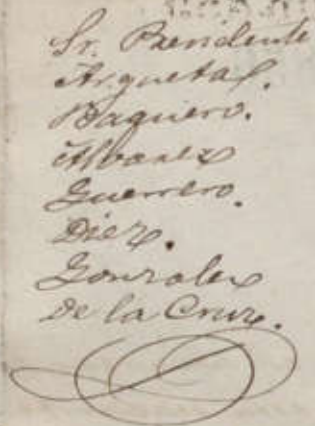 Sr. Presidente
Arguetas.
Baquero.
Alvarez
Guerrero.
Diez.
Gonzalez
De la Cruz.